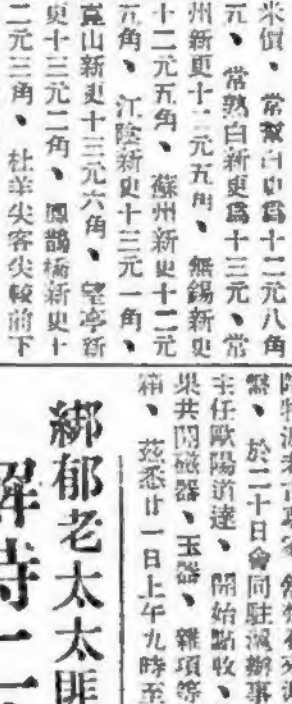 米價、常幫白更爲十二元八角
元、常熟白新更爲十三元、常
州新更十二元五角、無錫新更
十二元五角、蘇州新更十二元
五角、江陰新更十三元一角、
崑山新更十三元六角、望亭新
更十三元二角、鳳鵲橋新更十
二元三角、杜羊尖客尖較前下
於二十日會同駐滬辦事
主任歐陽道達、開始點收、
共開磁器、玉器、雜項等
箱、茲悉廿一日上午九時至
綁郁老太太匪
解